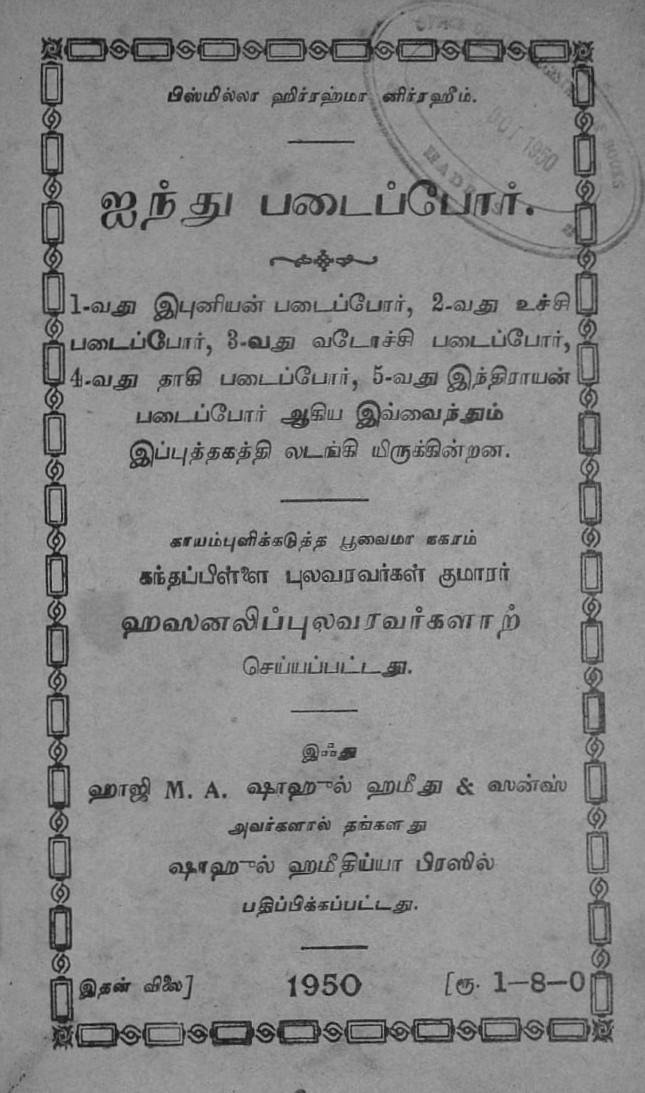 பிஸ்மில்லா ஹிர்ரஹ்மா னிர்ரஹீம்.
ஐந்து படைப்போர்.
1-வது இபுனியன் படைப்போர், 2-வது உச்சி
படைப்போர், 3-வது வடோச்சி படைப்போர்,
4-வது தாகி படைப்போர், 5-வது இந்திராயன்
படைப்போர் ஆகிய இவ்வைந்தும்
இப்புத்தகத்தி லடங்கி யிருக்கின்றன.
காயம்புளிக்கடுத்த பூவைமா நகரம்
கந்தப்பிள்ளை புலவரவர்கள் குமாரர்
ஹஸனலிப்புலவரவர்களாற்
செய்யப்பட்டது.
இஃது
ஹாஜி M. A. ஷாஹுல் ஹமீது & ஸன்ஸ்
அவர்களால் தங்களது
ஷாஹுல் ஹமீதிய்யா பிரஸில்
பதிப்பிக்கப்பட்டது.
இதன் விலை] 1950 [ரூ. 1-8-0
OCT 1950
BOOKS